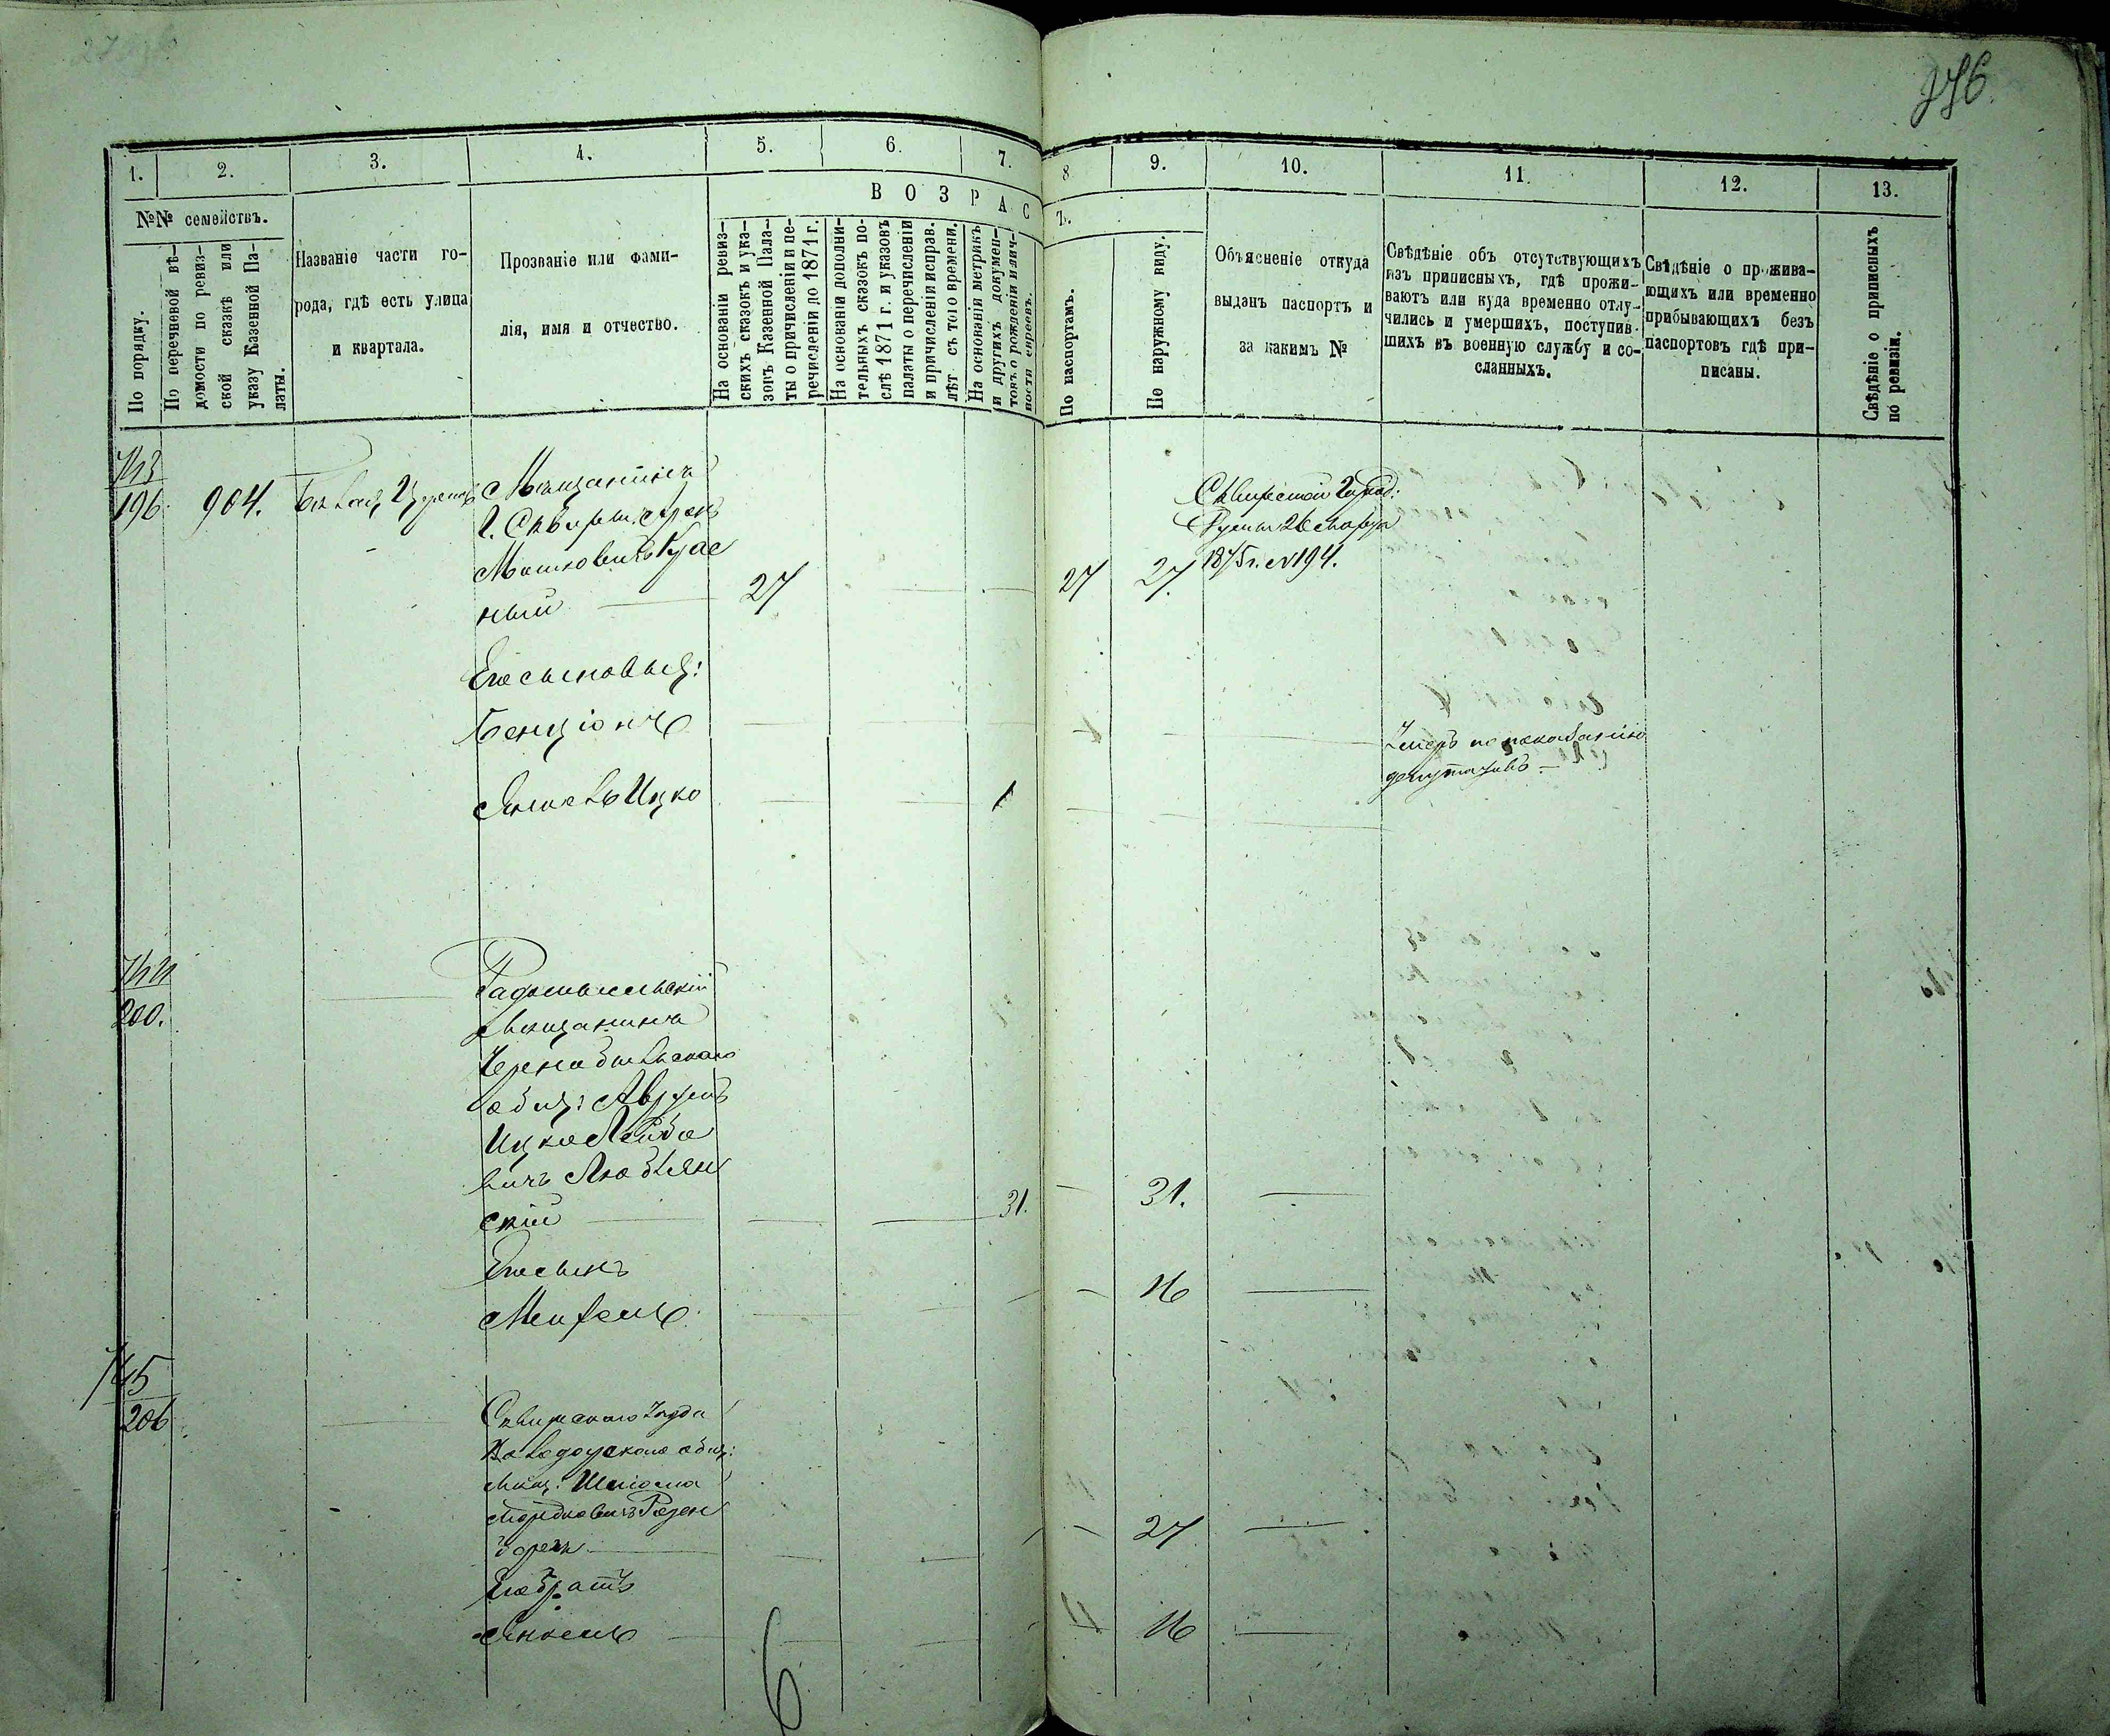 276.
1.
2.
3.
4.
5.
6.
7.
8
9.
10.
11.
12.
13.
№№ семействъ.
По порядку.
По перечневой вѣ-
домости по ревиз-
ской сказкѣ или
указу Казенной Па-
латы.
Названіе части го-
рода, гдѣ есть улица
и квартала.
Прозваніе или фами-
лія, имя и отчество.
ВОЗРАСТЪ.
На основаніи ревиз-
скихъ сказокъ и ука-
зовъ Казенной Пала-
ты о причисленіи и пе-
речисленіи до 1871 г.
На основаніи дополни-
тельныхъ сказокъ по-
слѣ 1871 г. и указовъ
палаты о перечисленіи
и причисленіи исправ.
лѣт съ того времени.
На основаніи метрикъ
и другихъ докумен-
товъ о рожденіи и лич-
ности евреевъ.
По паспортамъ.
По наружному виду.
Объясненіе откуда
выданъ паспортъ и
за какимъ №
Свѣдѣніе объ отсутствующихъ
изъ приписныхъ, гдѣ прожи-
ваютъ или куда временно отлу-
чились и умершихъ, поступив-
шихъ въ военную службу и со-
сланныхъ.
Свѣдѣніе о прожива-
ющихъ или временно
прибывающихъ безъ
паспортовъ гдѣ при-
писаны.
Свѣдѣніе о приписныхъ
по ревизіи.
743
196. 904. Мѣщанинъ
г. Сквиры
Мошковичъ Крас
ный 27 27 27.
Сквирской Город:
Думы 26
1875 г. №194.
Его сыновья:
Бенціонъ
Умеръ по показанію
депутатовъ
Ицко 1
744
200.
Радомысльскій
Мѣщанинъ
Чернобыльскаго
общ: Аврумъ
Ицко Лейбо
вичъ
скій 31. 31.
Его сынъ
16
745
206
Сквирскаго Уѣзда
общ:
мѣщ: Шліома
Мордковичъ Розен
27
Его братъ
Янкель 16
6